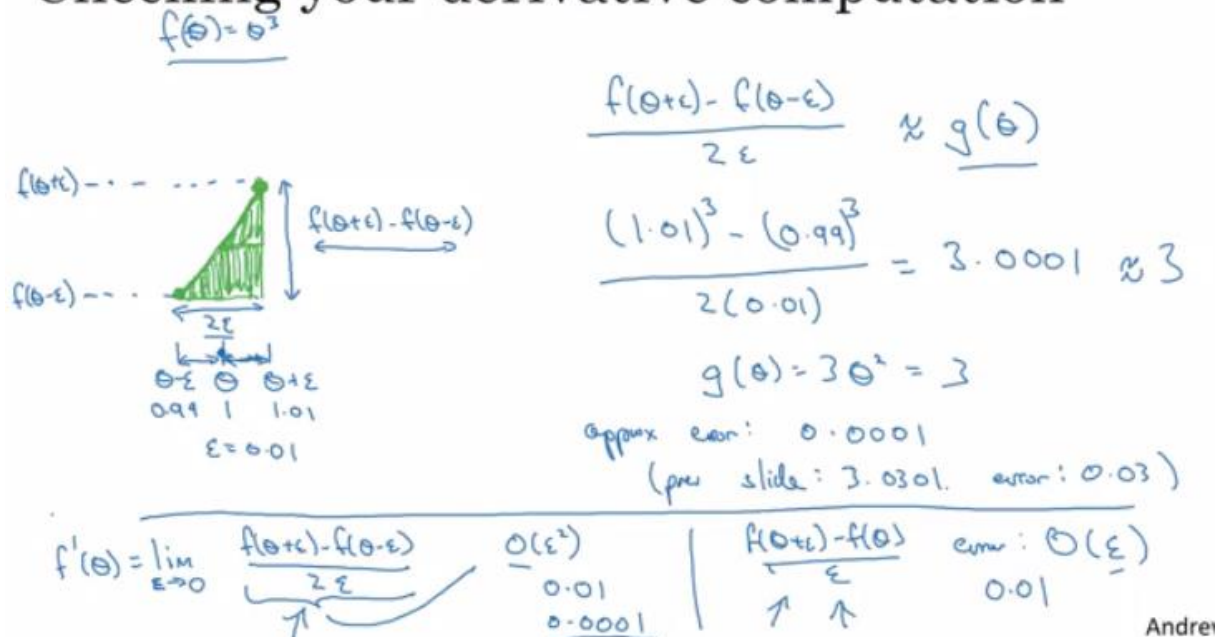 Checking your derivative computation
f(θ) = θ³
f(θ+ε) - f(θ-ε) / 2ε ≈ g(θ)
f(θ+ε)
f(θ+ε) - f(θ-ε)
f(θ-ε)
2ε
θ-ε θ θ+ε
0.99 1 1.01
ε = 0.01
(1.01)³ - (0.99)³ / 2(0.01) = 3.0001 ≈ 3
g(θ) = 3θ² = 3
approx error: 0.0001
(prev slide: 3.0301. error: 0.03)
f'(θ) = lim ε→0 f(θ+ε) - f(θ-ε) / 2ε O(ε²)
0.01
0.0001
f(θ+ε) - f(θ) / ε error: O(ε)
0.01
Andrew